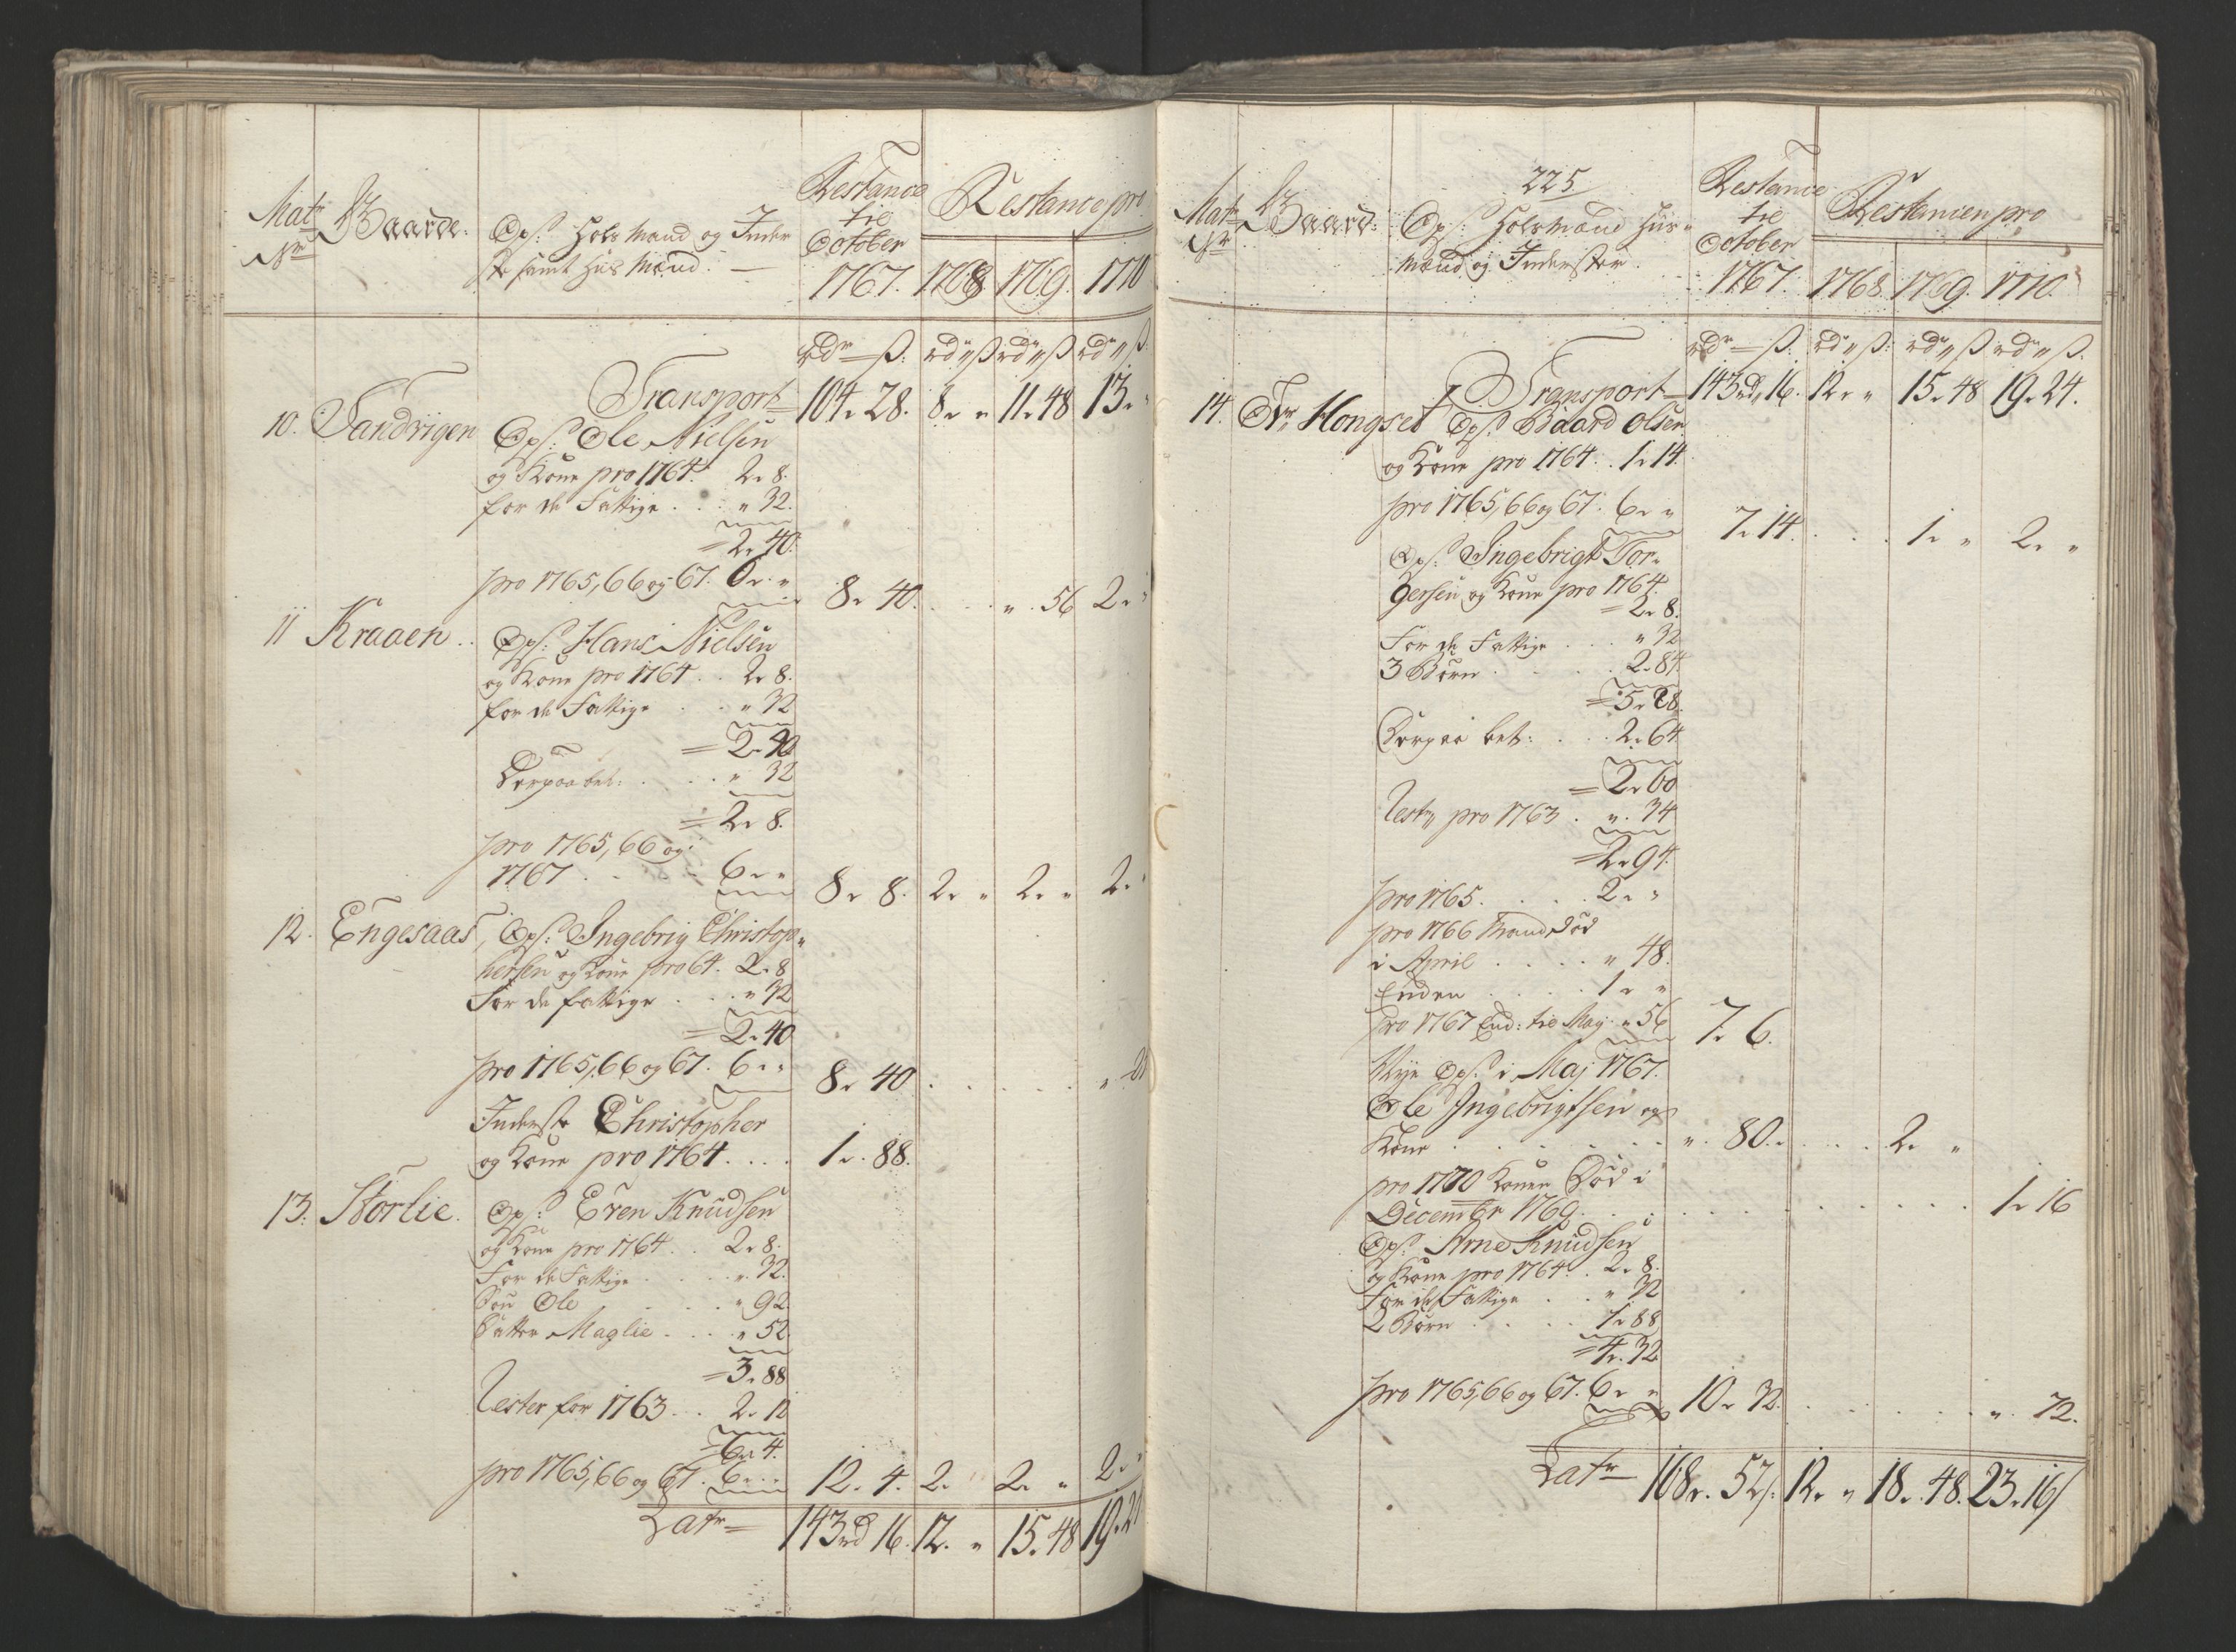 Matr Nr
Gaarde.
Ops: Holr Mand og Inder
ste samt Huus Mænd. —
Restance til October 1767.
Restance pro
1768. 1769. 1770
rdr — ß: rdr „ ß rdr „ ß rdr „ ß.
Transport = 104 „ 28. 8 „ „ 11 „ 48 13 „
10. Sandvigen Ops: Ole Nielsen
og Kone pro 1764. 2 „ 8.
for de Fattige . . . „ 32.
= 2 „ 40.
pro 1765, 66 og 67. 6 „ „ 8 „ 40. . . . „ 56 2 „
11 Kraaen . . Ops: Hans Nielsen
og Kone pro 1764 . . 2 „ 8.
for de Fattige . . „ 32
= 2 „ 40
Derpaa bet: . . . „ 32
= 2 „ 8.
pro 1765, 66 og
1767 . . . . 6 „ „ 8 „ 8. 2 „ „ 2 „ „ 2 „
12. Engesaas, Ops: Ingebrig Christop„
hersen og Kone pro 64. 2 „ 8
For de fattige . . . „ 32
= 2 „ 40
pro 1765, 66 og 67. 6 „ „ 8 „ 40 . . . . . „
Inderste Christopher
og Kone pro 1764 . . . . 1 „ 88.
13. Storlie. Ops: Even Knudsen
og Kone pro 1764 . . 2 „ 8.
For de Fattige . . . . „ 32.
Søn Ole . . . . „ 92
Datter Maglie . . . „ 52
= 3 „ 88
Rester for 1763 . . 2 „ 12
= 6 „ 4.
pro 1765, 66 og 67. 6 „ „ 12. 4. 2 „ 2 „ „ 2 „
Latr = 143 rd 16. 12. „ 15 „ 48 19 „
225
Matr Nr
Gaard:
Ops: Holrmænd Huus„
mænd og Inderster.
Restance til October 1767.
Restancen pro
1768. 1769. 1770.
rdr — ß: rdr „ ß: rdr „ ß rdr „ ß.
Transport = 143 rd „ 16. 12 „ „ 15 „ 48 19 „ 24.
14. Nr Hongset Ops: Baard Olsen
og Kone pro 1764 . . 1 „ 14.
pro 1765, 66 og 67. 6 „ „ 7 „ 14. . . . 1 „ „ 2 „ „
Ops: Ingebrigt Tor„
gersen og Kone pro 1764.
= 2 „ 8.
For de Fattige . . . „ 32
3 Børn . . . . 2 „ 84.
= 5 „ 28.
Derpaa bet: . . . 2 „ 64
= 2 „ 60
Rest „ pro 1763 . „ 34
= 2 „ 94.
pro 1765 . . . . 2 „ „
pro 1766 Mand død
i April . . . . „ 48.
Enken . . . . 1 „ „
pro 1767 Enk: til Maj „ 56 7 „ 6.
Nye Ops: i Maj 1767.
Ole Ingebrigtsen og
Kone . . . . . . „ 80. . . . . 2 „ „
pro 1770 Konen Død i
Decembr 1769. . . . . . . . . . . . 1 „ 16
Ops: Arne Knudsen
og Kone pro 1764 . . 2 „ 8.
For de Fattige . . „ 32
2 Børn . . . . 1 „ 88
= 4 „ 32
pro 1765, 66 og 67. 6 „ „ 10 „ 32. . . . . . . „ 72.
Latr — 168 „ 52 ß. 12 „ „ 18 „ 48. 23 „ 16 ß